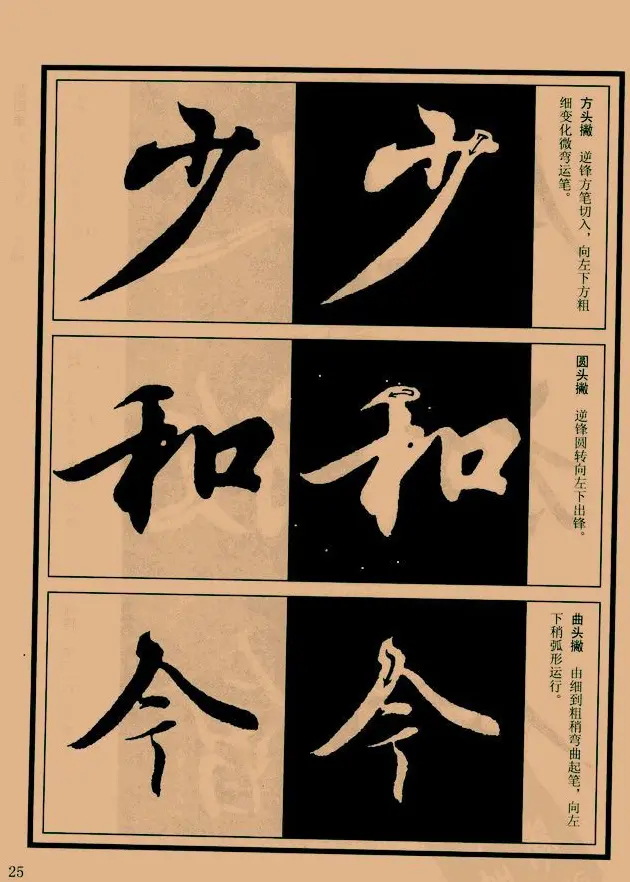 方头撇 逆锋方笔切入，向左下方粗
细变化微弯运笔。
少
少
圆头撇 逆锋圆转向左下出锋。
和
和
曲头撇 由细到粗稍弯曲起笔，向左
下稍弧形运行。
今
今
25